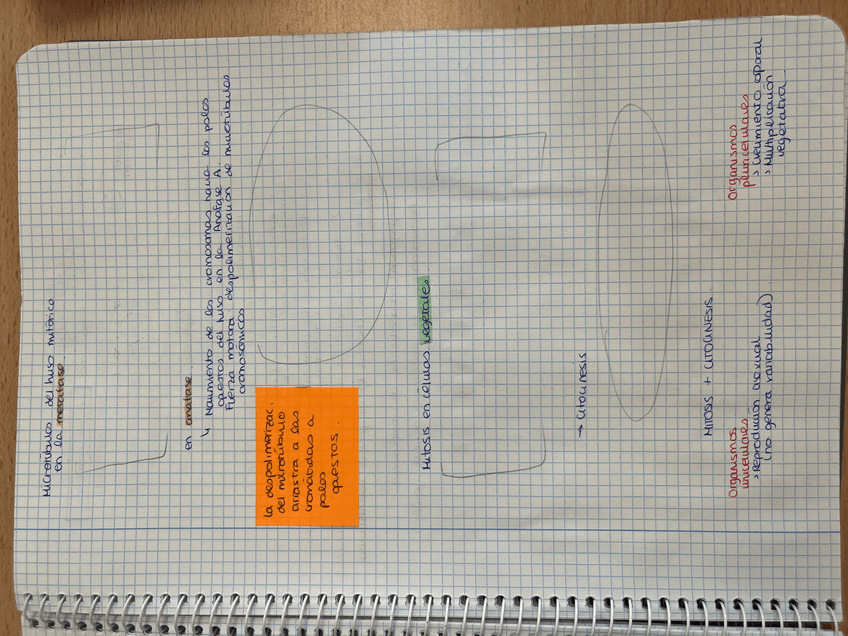 Microtúbulos del huso mitótico
en la metafase
en anafase
↳ Movimiento de los cromosomas hacia los polos
opuestos del huso en la Anafase A.
Fuerza motora: despolimerización de microtúbulos
cromosómicos
la despolimerizac.
del microtúbulo
arrastra a las
cromátidas a
polos
opuestos.
Mitosis en células vegetales
→ Citocinesis
MITOSIS + CITOCINESIS
Organismos
unicelulares
> Reproducción asexual
(no genera variabilidad)
Organismos
pluricelulares
> Crecimiento corporal
> Multiplicación
vegetativa